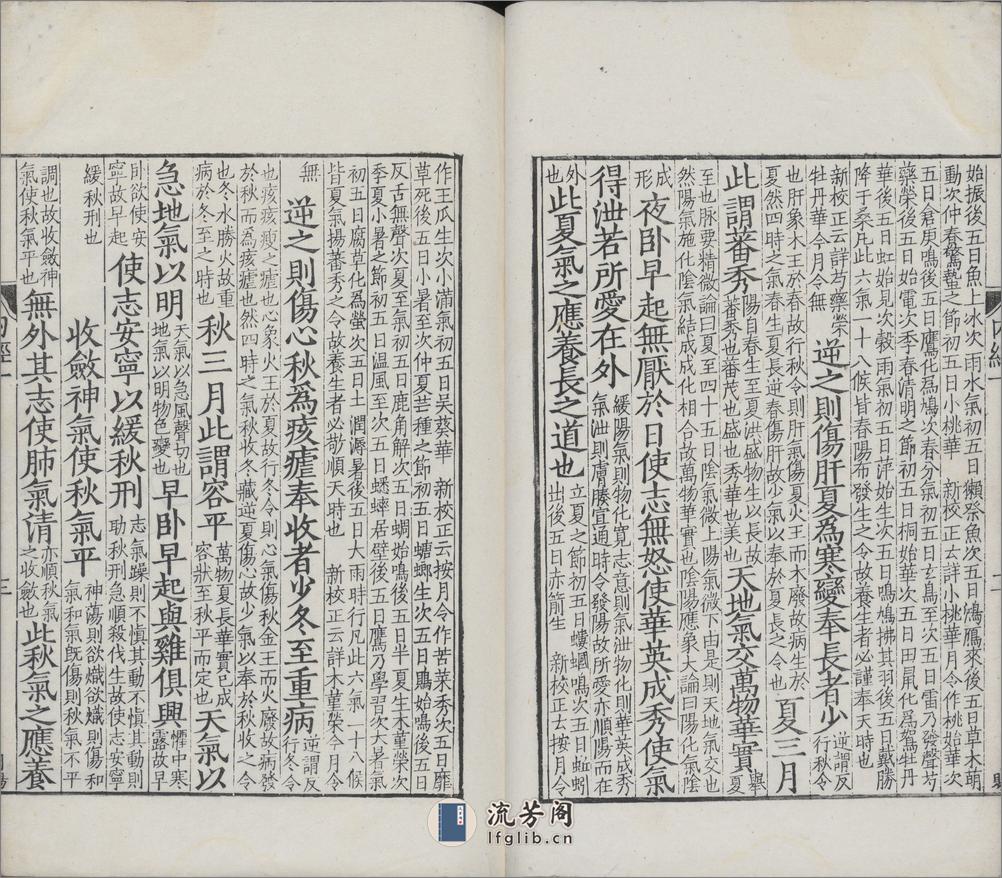 始振後五日魚上冰次雨水氣初五日獺祭魚次五日鴻鴈來後五日草木萌
動次仲春驚蟄之節初五日小桃華 新校正云詳小桃華月令作桃始華次
五日倉庚鳴後五日鷹化爲鳩次春分氣初五日玄鳥至次五日雷乃發聲芍
藥榮後五日始電次季春清明之節初五日桐始華次五日田鼠化爲鴽牡丹
華後五日虹始見次穀雨氣初五日萍始生次五日鳴鳩拂其羽後五日戴勝
降于桑凡此六氣一十八候皆春陽布發生之令故養生者必謹奉天時也
新校正云詳芍藥榮牡丹華今月令無 逆之則傷肝夏爲寒變奉長者少 逆謂反行秋令
也肝象木王於春故行秋令則肝氣傷夏火王而木廢故病生於夏然四時之氣春生夏長逆春傷肝故少氣以奉於夏長之令也 夏三月
此謂蕃秀 陽自春生至夏洪盛物生以長故蕃秀也蕃茂也盛也秀華也美也 天地氣交萬物華實 舉夏
至也脉要精微論曰夏至四十五日陰氣微上陽氣微下由是則天地氣交也
然陽氣施化陰氣結成成化相合故萬物華實也陰陽應象大論曰陽化氣陰
成形 夜卧早起無厭於日使志無怒使華英成秀使氣
得泄若所愛在外 緩陽氣則物化寬志意則氣泄物化則華英成秀氣泄則膚腠宣通時令發陽故所愛亦順陽而在
外也 此夏氣之應養長之道也 立夏之節初五日螻蟈鳴次五日蚯蚓出後五日赤箭生 新校正云按月令
作王瓜生次小滿氣初五日吴葵華 新校正云按月令作苦菜秀次五日靡
草死後五日小暑至次仲夏芒種之節初五日螗螂生次五日鵙始鳴後五日
反舌無聲次夏至氣初五日鹿角解次五日蜩始鳴後五日半夏生木菫榮次
季夏小暑之節初五日温風至次五日蟋蟀居壁後五日鷹乃學習次大暑氣
初五日腐草化爲螢次五日土潤溽暑後五日大雨時行凡此六氣一十八候
皆夏氣揚蕃秀之令故養生者必敬順天時也 新校正云詳木菫榮今月令
無 逆之則傷心秋爲痎瘧奉收者少冬至重病 逆謂反行冬令
也痎痎瘦之瘧也心象火王於夏故行冬令則心氣傷秋金王而火廢故病發
於秋而爲痎瘧也然四時之氣秋收冬藏逆夏傷心故少氣以奉於秋收之令
也冬水勝火故重病於冬至之時也 秋三月此謂容平 萬物夏長華實已成容狀至秋平而定也 天氣以
急地氣以明 天氣以急風聲切也地氣以明物色變也 早卧早起與雞俱興 懼中寒露故早卧
則欲使安寧故早起 使志安寧以緩秋刑 志氣躁則不慎其動不慎其動則助秋刑急順殺伐生故使志安寧
緩秋刑也 收斂神氣使秋氣平 神蕩則欲熾欲熾則傷和氣和氣既傷則秋氣不平
調也故收斂神氣使秋氣平也 無外其志使肺氣清 亦順秋氣之收斂也 此秋氣之應養
流芳阁
lfglib.cn